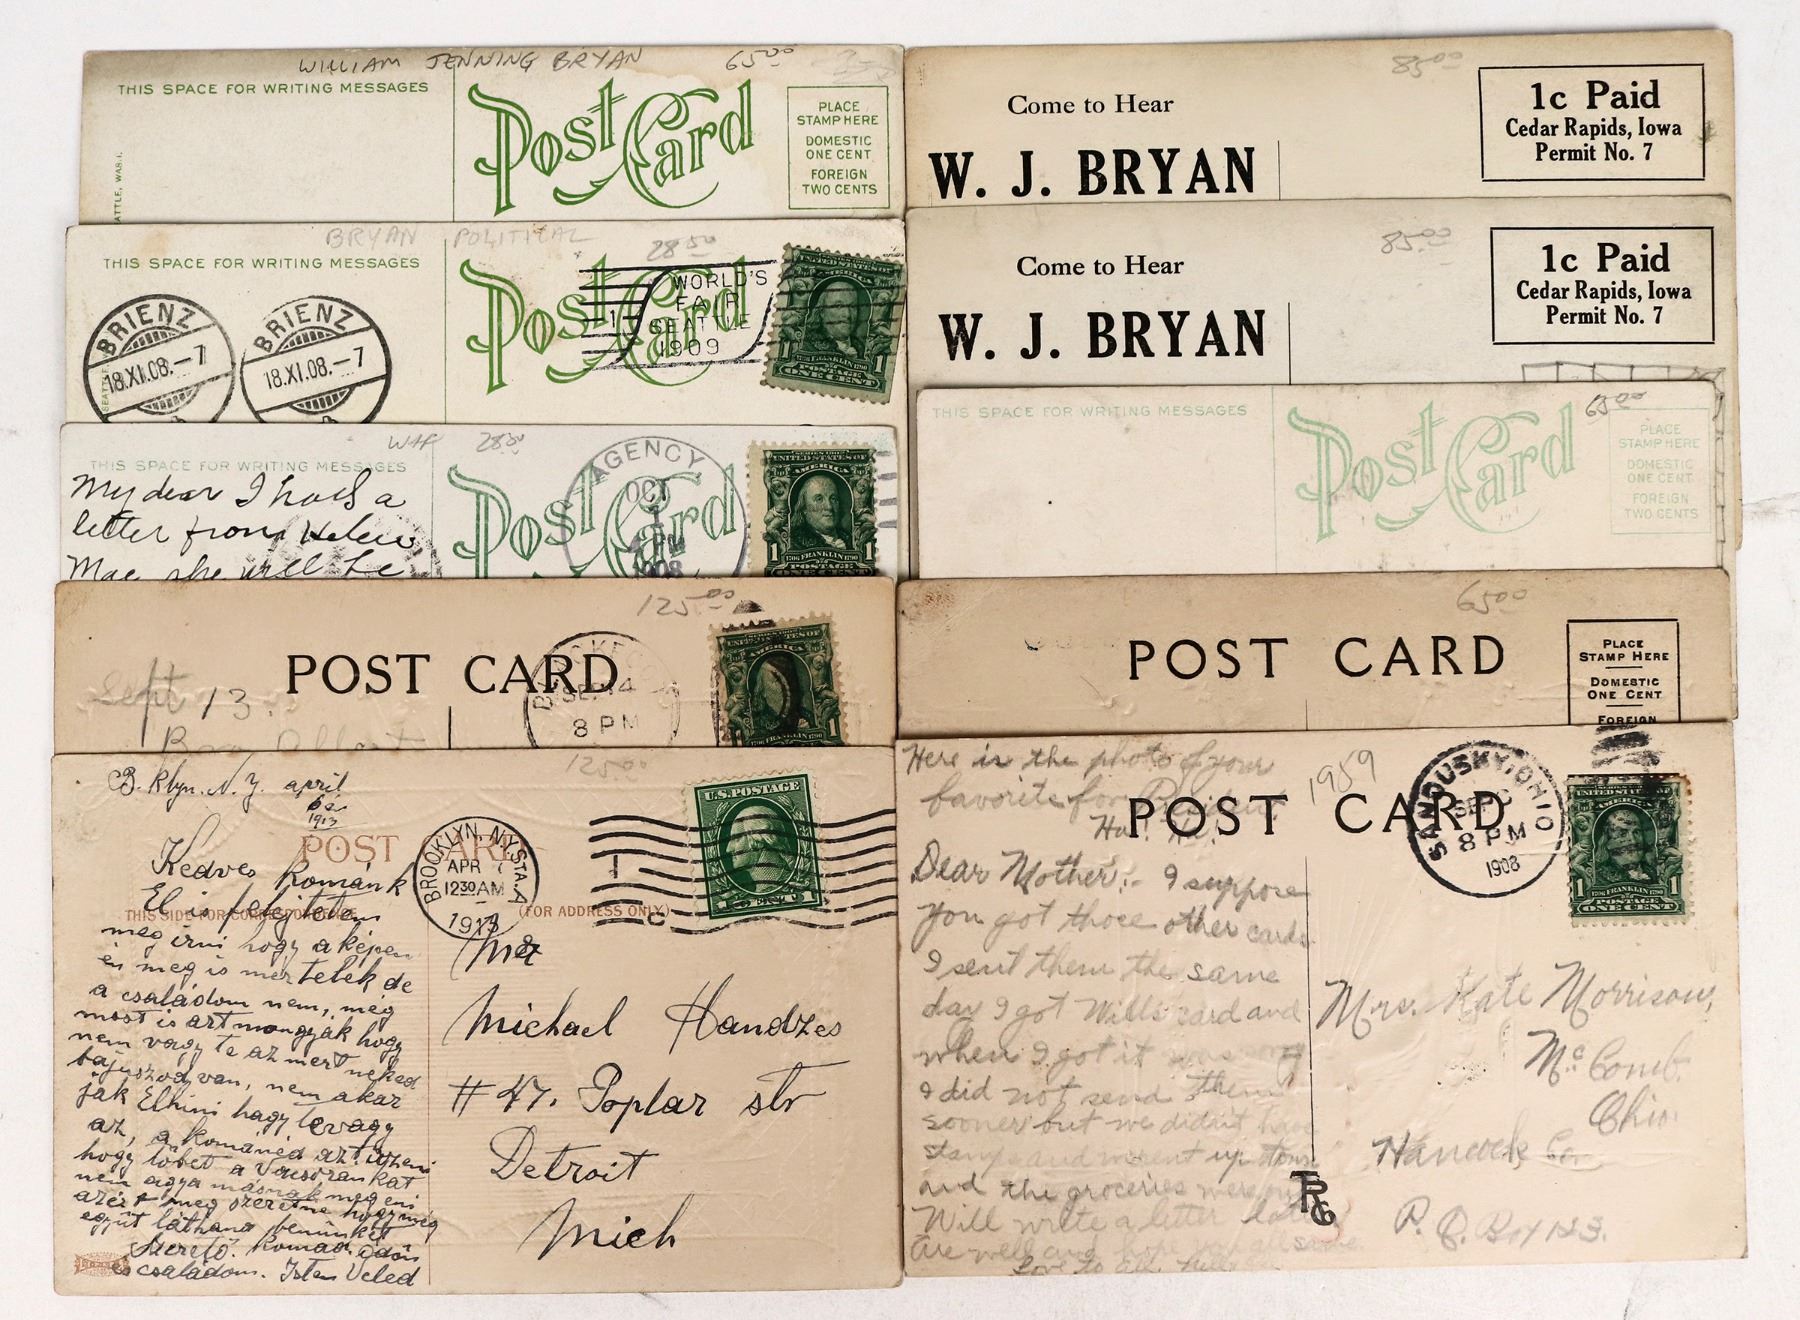 WILLIAM JENNING BRYAN 65.00
THIS SPACE FOR WRITING MESSAGES
Post Card
PLACE
STAMP HERE
DOMESTIC
ONE CENT
FOREIGN
TWO CENTS
BRYAN POLITICAL
28.50
THIS SPACE FOR WRITING MESSAGES
Post Card
BRIENZ
18.XI.08.–7
BRIENZ
18.XI.08.–7
WORLD'S
FAIR
SEATTLE
1909
1 POSTAGE 1
ONE CENT
28.00
THIS SPACE FOR WRITING MESSAGES
Post Card
My dear I had a
letter from Helen
Mae she will be
AGENCY
OCT
PM
1908
SERIES 1902
UNITED STATES OF
AMERICA
1 1706 FRANKLIN 1790 1
ONE CENT
125.00
POST CARD
Sept 13.
SEP 14
8 PM
125.00
B.klyn. N.Y. april
6a
1913
POST CARD
THIS SIDE FOR CORRESPONDENCE
(FOR ADDRESS ONLY)
BROOKLYN, N.Y. STA. A
APR
12 30 AM
1913
U.S. POSTAGE
Kedves Románk
El is felejtetem
meg irni hogy a képen
én meg is mertelek de
a családom nem, még
most is azt mongyák hogy
nem vagy te az mert neked
bajuszod van, nem akar
ják Elhini hogy te vagy
az, a komanéd azt üzeni
hogy többet a Vacsoránkat
nem agya másnak meg eni
azért meg szeretne hogy még
együt láthana benünket
Szerető. Komád Ödön
és családom. Isten Veled
Mr
Michael Handzes
# 47. Poplar str
Detroit
Mich
85.00
Come to Hear
W. J. BRYAN
1c Paid
Cedar Rapids, Iowa
Permit No. 7
85.00
Come to Hear
W. J. BRYAN
1c Paid
Cedar Rapids, Iowa
Permit No. 7
65.00
THIS SPACE FOR WRITING MESSAGES
Post Card
PLACE
STAMP HERE
DOMESTIC
ONE CENT
FOREIGN
TWO CENTS
65.00
POST CARD
PLACE
STAMP HERE
DOMESTIC
ONE CENT
FOREIGN
Here is the photo of your
favorite for President
Ha! Ha!
1959
POST CARD
SANDUSKY, OHIO
SEP
8 PM
1908
1 1706 FRANKLIN 1790 1
ONE CENT
Dear Mother:- I suppose
you got those other cards
I sent them the same
day I got Will's card and
when I got it was
I did not send them
sooner but we didn't have
stamps and went up town
and the groceries were
Will write a letter later
Are well and hope you all same
Love to all.
Mrs. Kate Morrison,
McComb.
Ohio.
Hancock Co.
P. O. Box 123.